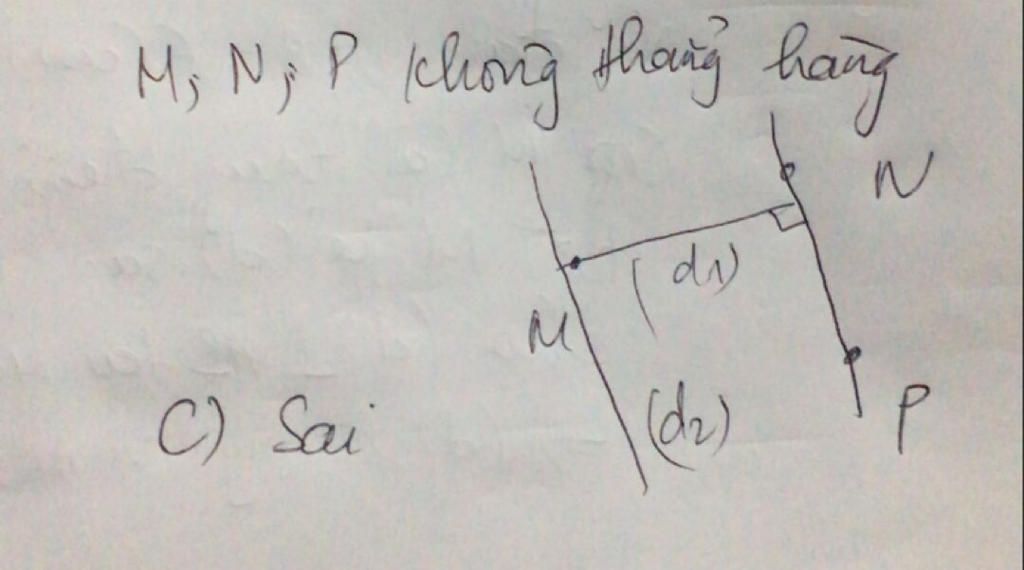 M; N; P không thẳng hàng
N
(d1)
M
(d2)
P
C) Sai